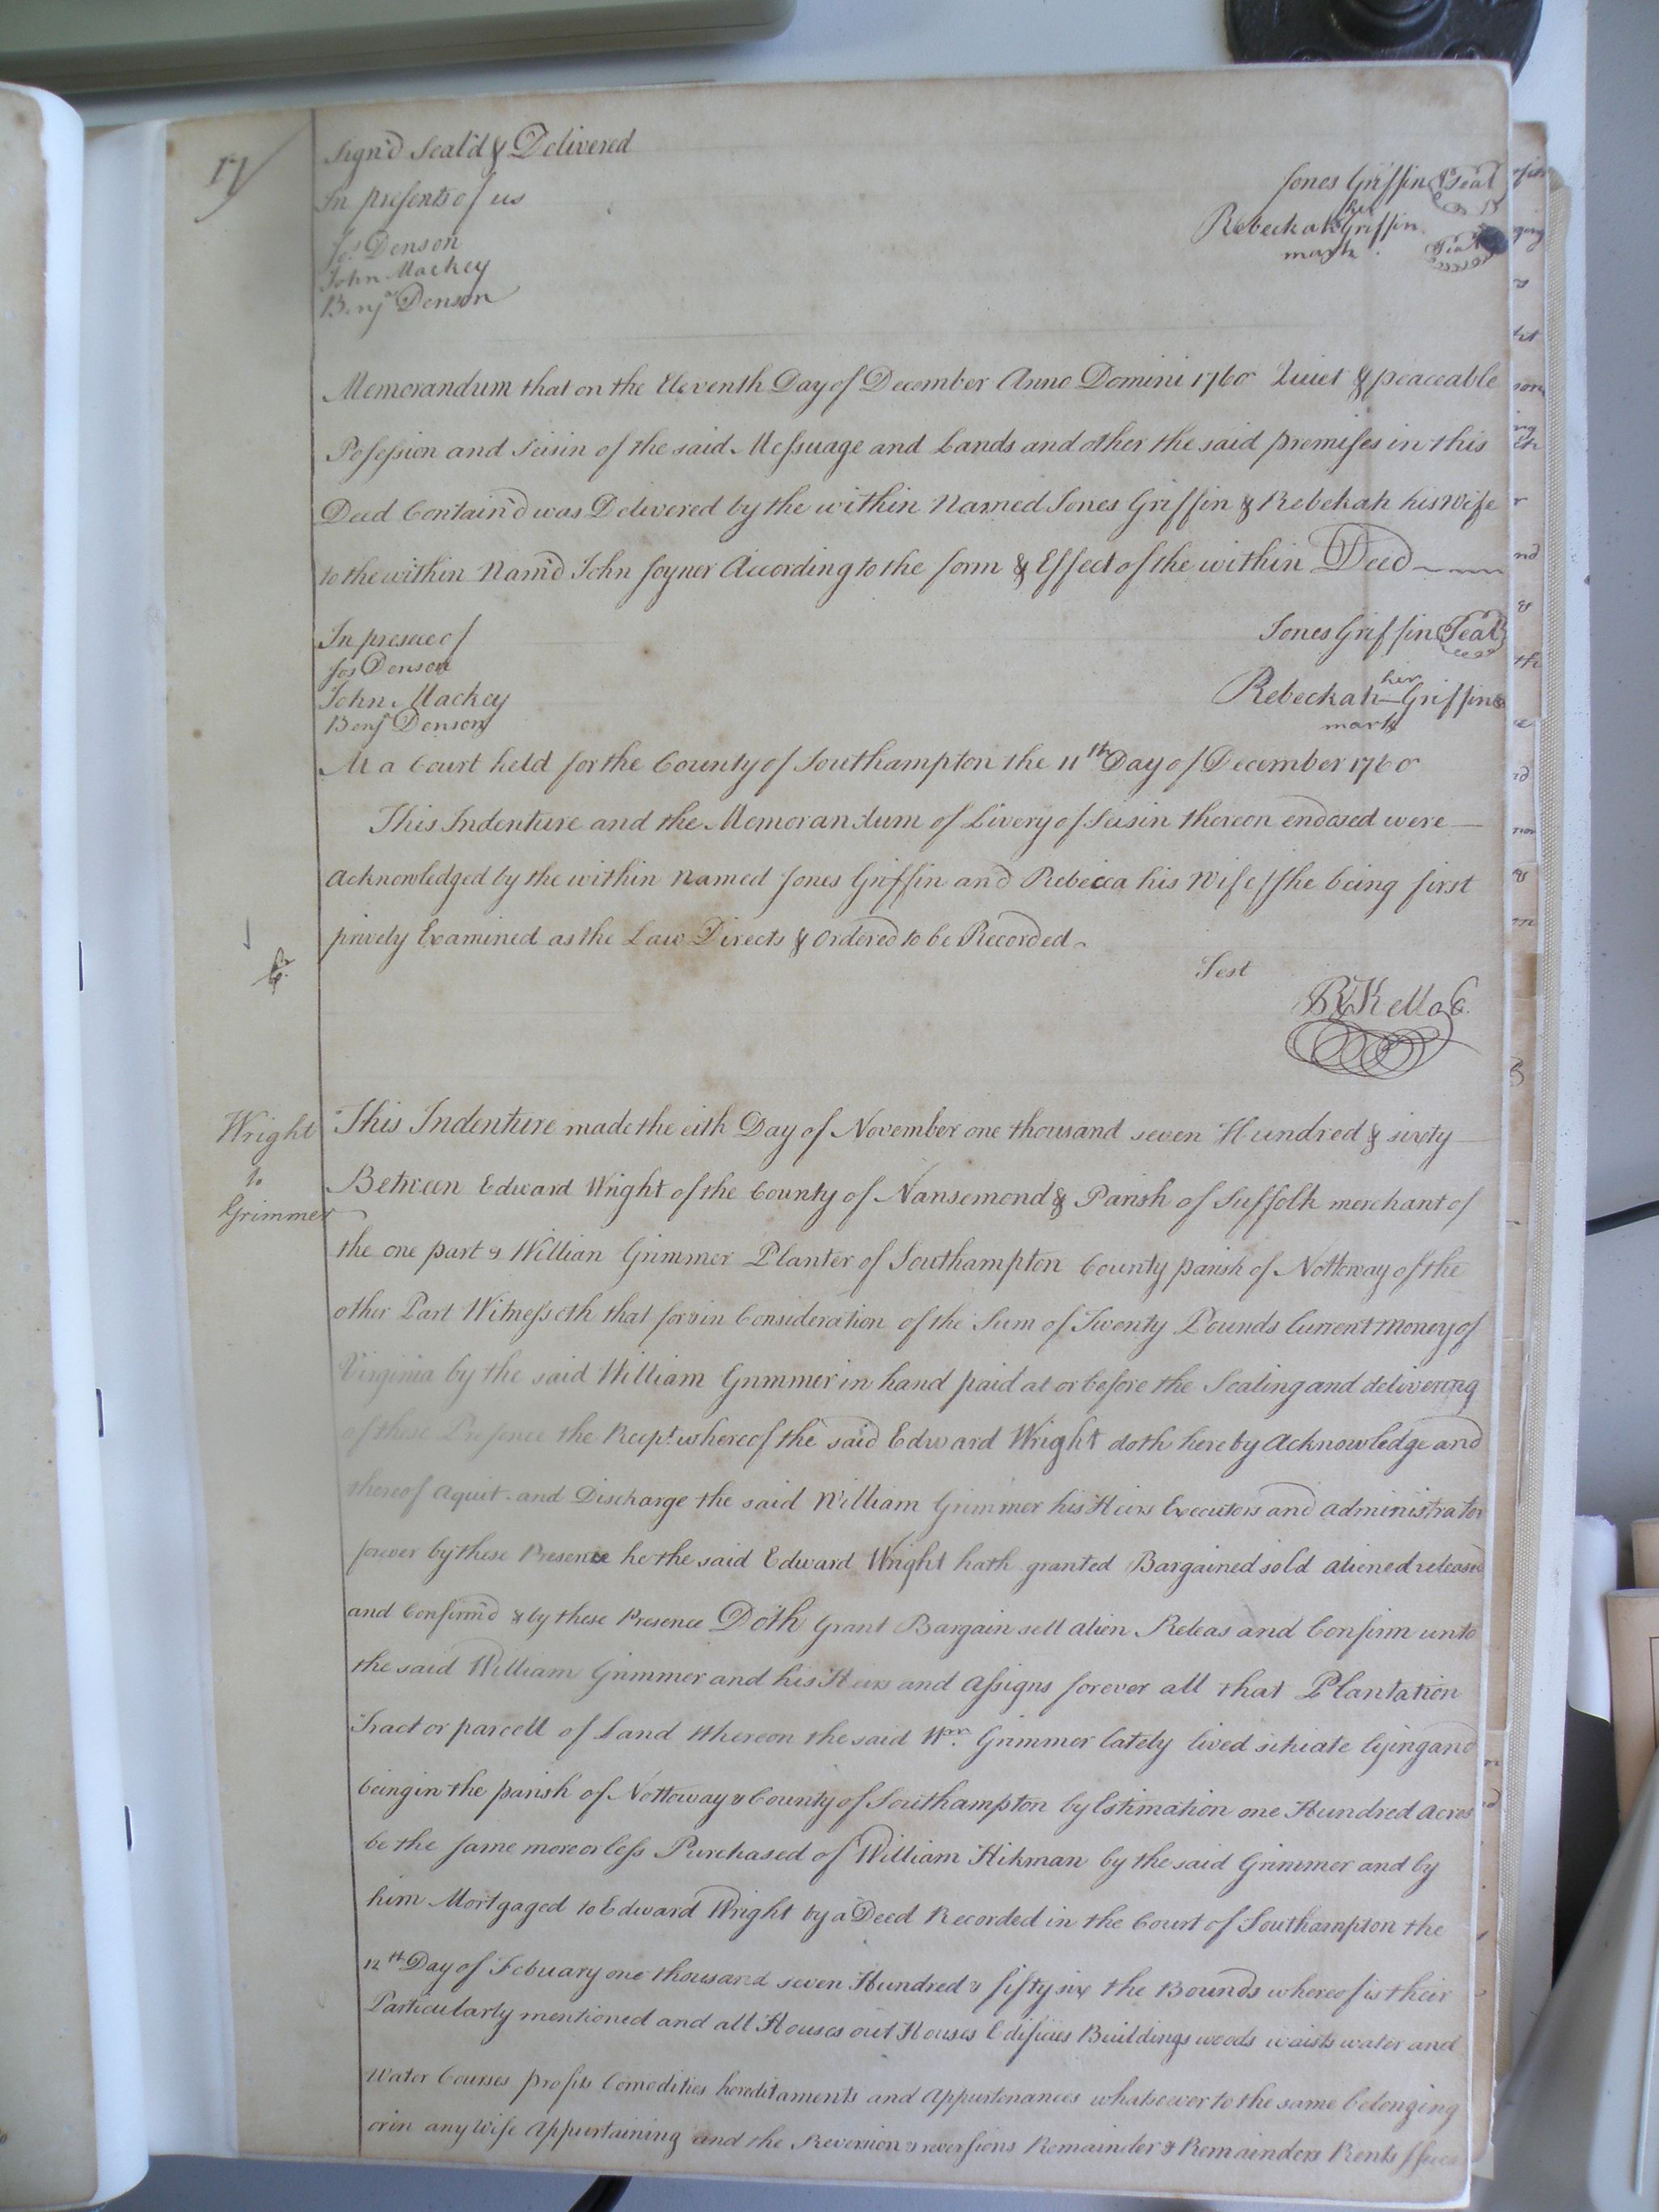 17
Sign'd Seal'd & Delivered
In presents of us
Jones Griffin Seal
her
Rebeckah Griffin Seal
mark
Jos Denson
John Mackey
Benja Denson
Memorandum that on the Eleventh Day of December Anno Domini 1760 Quiet & peaceable
Possession and Seisin of the said Messuage and Lands and other the said premises in this
Deed Contain'd was Delivered by the within Named Jones Griffin & Rebekah his Wife
to the within Nam'd John Joyner According to the form & Effect of the within Deed
In presece of
Jos Denson
John Mackey
Benj Denson
Jones Griffin Seal
her
Rebeckah Griffin
mark
At a Court held for the County of Southampton the 11th Day of December 1760
This Indenture and the Memorandum of Livery of Seisin thereon endosed were
Acknowledged by the within named Jones Griffin and Rebecca his Wife she being first
prively Examined as the Law Directs & Ordered to be Recorded
Test
R Kello C.
Wright
to
Grimmer
This Indenture made the eith Day of November one thousand seven Hundred & sixty
Between Edward Wright of the County of Nansemond & Parish of Suffolk merchant of
the one part & Willian Grimmer Planter of Southampton County parish of Nottoway of the
other Part Witnesseth that for & in Consideration of the Sum of Twenty Pounds Current money of
Virginia by the said William Grimmer in hand paid at or before the Sealing and delivering
of these Presence the Recept whereof the said Edward Wright doth hereby Acknowledge and
thereof aquit and Discharge the said William Grimmer his Heirs Executors and administrator
forever by these Presence he the said Edward Wright hath granted Bargained sold aliened released
and Confirm'd & by these Presence Doth Grant Bargain sell alien Releas and Confirm unto
the said William Grimmer and his Heirs and Assigns forever all that Plantation
Tract or parcell of Land Whereon the said Wm. Grimmer lately lived situate lying and
being in the parish of Nottoway & County of Southampton by Estimation one Hundred Acres
be the same more or less Purchased of William Hikman by the said Grimmer and by
him Mortgaged to Edward Wright by a Deed Recorded in the Court of Southampton the
12th Day of Febuary one thousand seven Hundred & fifty six the Bounds whereof is their
Particularly mentioned and all Houses out Houses Edifices Buildings woods waists water and
Water Courses profits Comodities hereditaments and Appurtenances whatsoever to the same belonging
or in any Wise Appurtaining and the Reversion & reversions Remainder & Remainders Rents